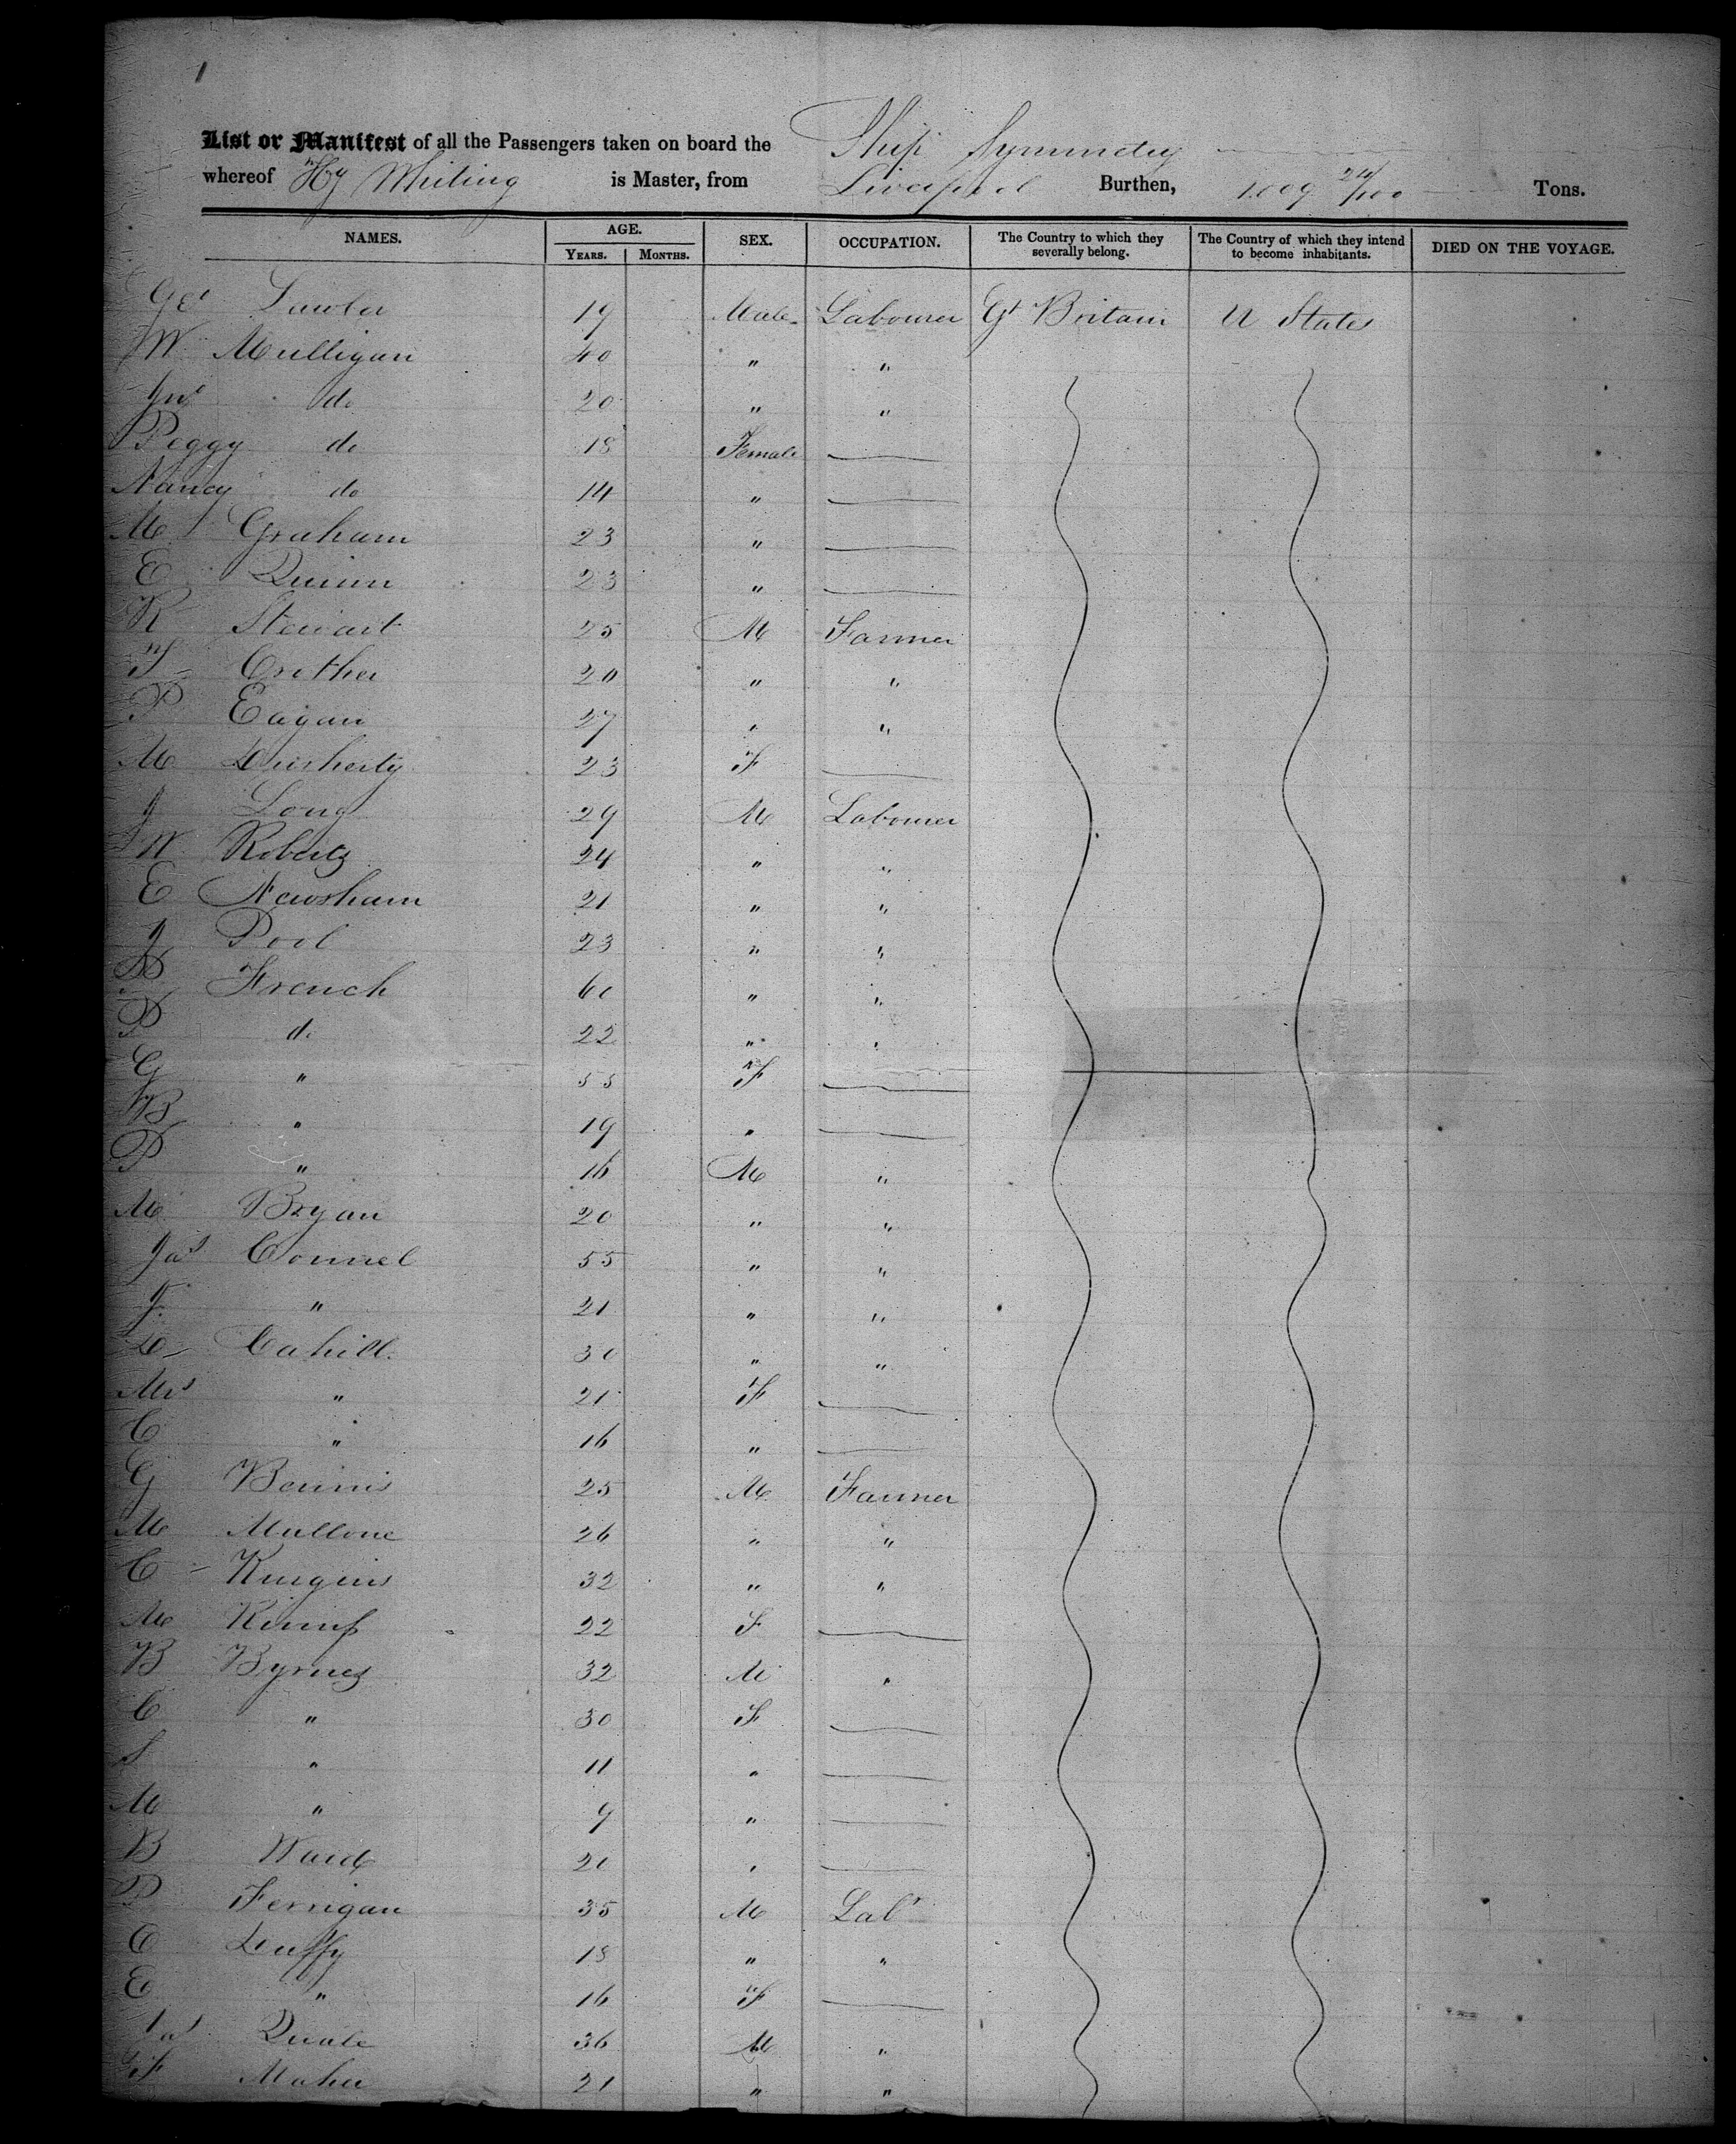 1
List or Manifest of all the Passengers taken on board the Ship Symmetry
whereof Hy Whiting is Master, from Liverpool Burthen, 1009 24/100 Tons.
NAMES. AGE. SEX. OCCUPATION. The Country to which they severally belong. The Country of which they intend to become inhabitants. DIED ON THE VOYAGE.
YEARS. MONTHS.
Geo Lawler 19 Male Labourer Gt Britain U States
W Mulligan 40 " "
Jno do 20 " "
Peggy do 18 Female
Nancy do 14 "
M Graham 23 "
E Quinn 23 "
R Stewart 25 M Farmer
T Crother 20 " "
P Eagan 27 " "
M 23 F
J Long 29 M Labourer
W Roberts 24 " "
E Newsham 21 " "
J Pool 23 " "
French 60 " "
P do 22 " "
G " 55 F
B " 19 "
P " 16 M "
M Bryan 20 " "
Jas Connel 55 " "
J " 21 " "
D Cahill 30 " "
Mrs " 21 F
C " 16 "
G Bennis 25 M Farmer
M Mullone 26 " "
C 32 " "
M 22 F
B Byrnes 32 M "
C " 30 F
S " 11 "
M " 9 "
B Ward 20 "
P Ferrigan 35 M Labr
C Duffy 18 " "
E " 16 F
Jas Quale 36 M "
F Maher 21 " "